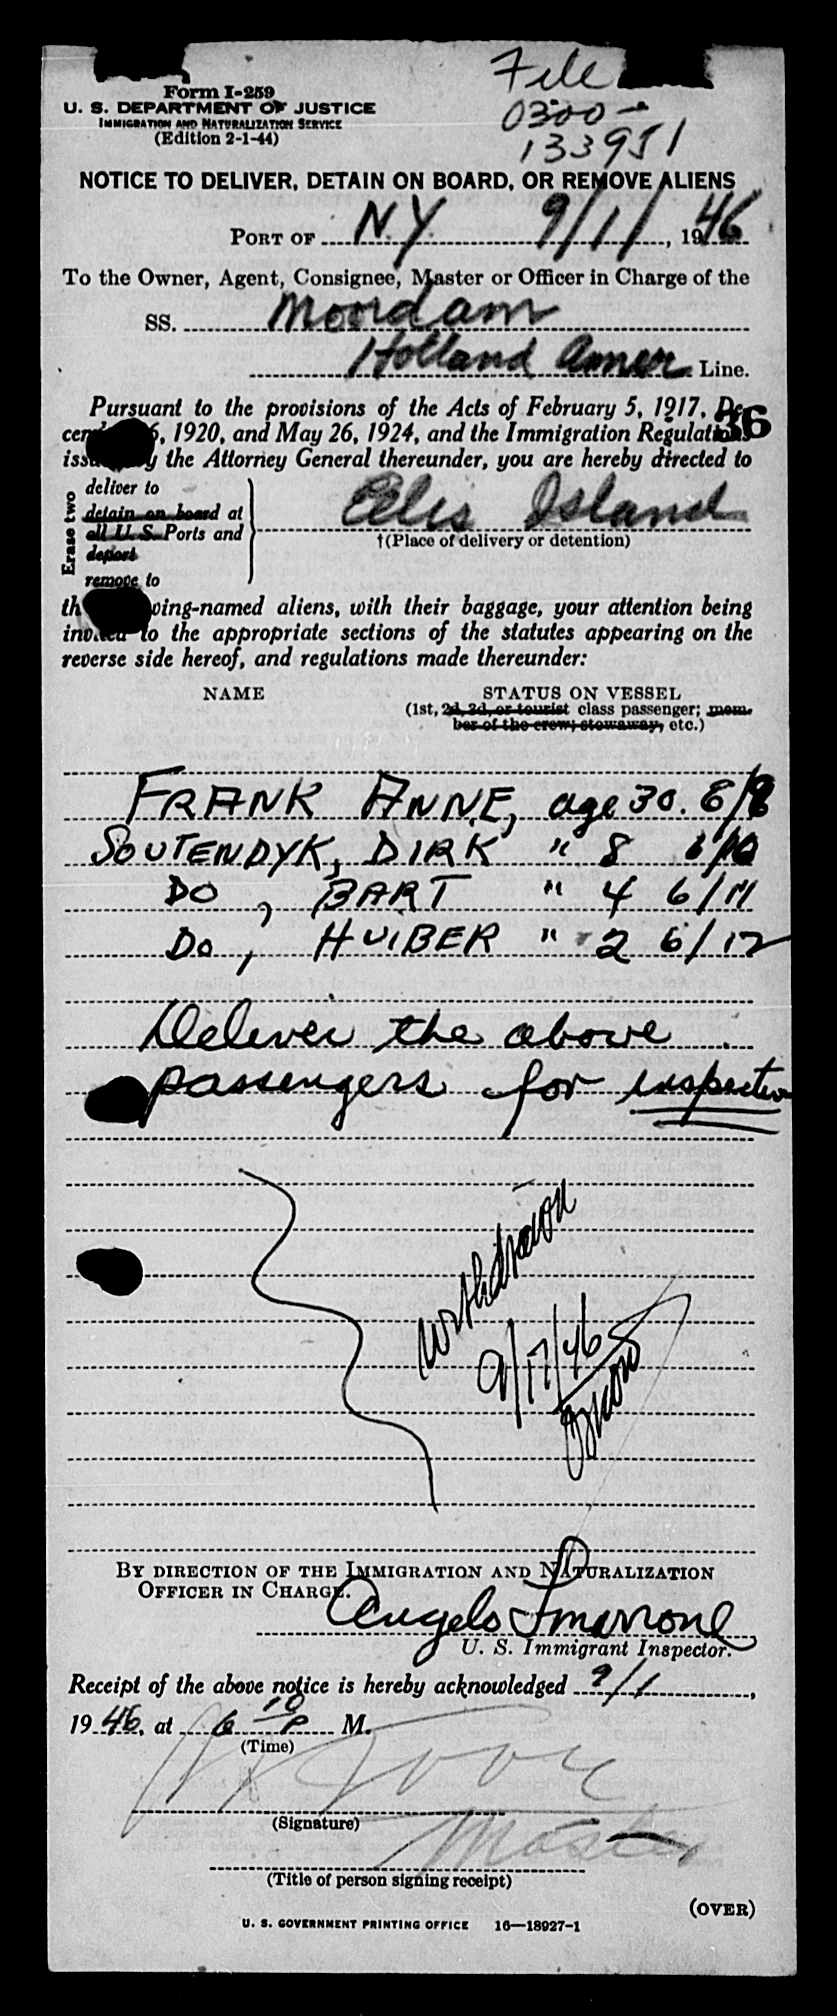 File
0300-
133951
Form I-259
U. S. DEPARTMENT OF JUSTICE
IMMIGRATION AND NATURALIZATION SERVICE
(Edition 2-1-44)
NOTICE TO DELIVER, DETAIN ON BOARD, OR REMOVE ALIENS
PORT OF NY 9/1/, 1946
To the Owner, Agent, Consignee, Master or Officer in Charge of the
SS. Noordam
Holland Amer Line.
Pursuant to the provisions of the Acts of February 5, 1917, De-
36
6, 1920, and May 26, 1924, and the Immigration Regulations
the Attorney General thereunder, you are hereby directed to
Erase two
deliver to
detain on board at
all U. S. Ports and
deport
remove to
Ellis Island
†(Place of delivery or detention)
-named aliens, with their baggage, your attention being
invited to the appropriate sections of the statutes appearing on the
reverse side hereof, and regulations made thereunder:
NAME STATUS ON VESSEL
(1st, 2d, 3d, or tourist class passenger; mem-
ber of the crew; stowaway, etc.)
FRANK ANNE, age 30.
SOUTENDYK, DIRK " 8
DO, BART " 4 6/11
Do, HUIBER " 2 6/12
Deliver the above
passengers for inspection
withdrawn
9/17/46
BY DIRECTION OF THE IMMIGRATION AND NATURALIZATION
OFFICER IN CHARGE.
Angelo Smarrone
U. S. Immigrant Inspector.
Receipt of the above notice is hereby acknowledged 9/1,
1946, at 6 10 P M.
(Time)
(Signature)
Master
(Title of person signing receipt)
(OVER)
U. S. GOVERNMENT PRINTING OFFICE 16—18927-1